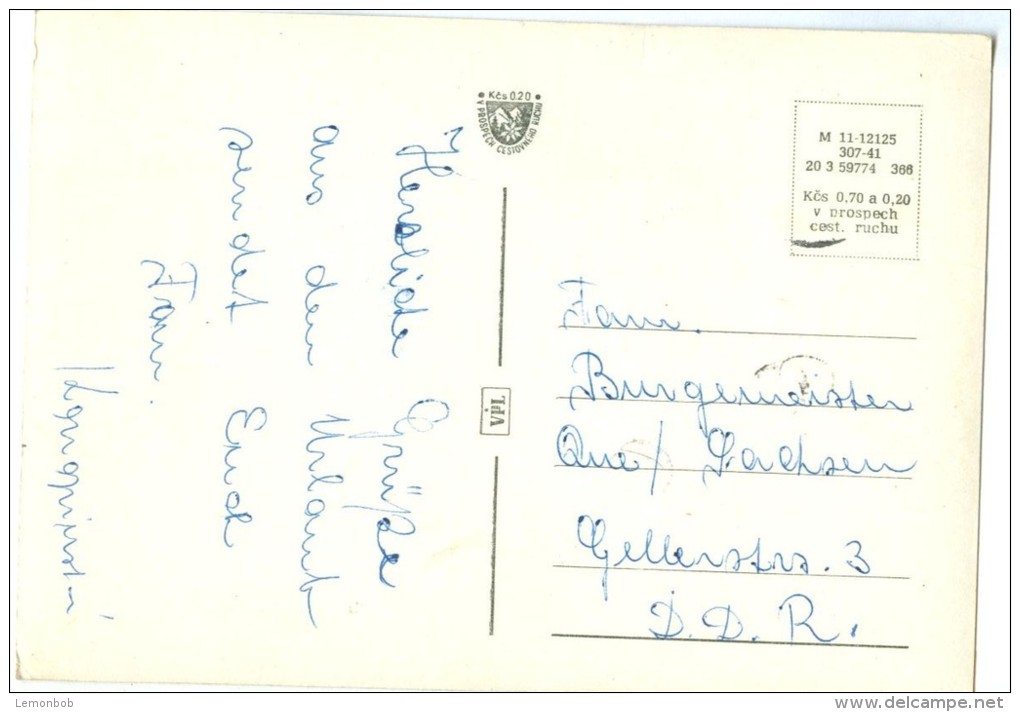 Herzliche Grüße
aus dem Urlaub
sendet Euch
Fam.
Kčs 0.20
V PROSPECH CESTOVNÉHO RUCHU
VPL
M 11-12125
307-41
20 3 59774 366
Kčs 0,70 a 0,20
v prospech
cest. ruchu
Fam.
Burgemeister
Aue / Sachsen
Gellerstrs. 3
D. D. R.
Lemonbob
www.delcampe.net